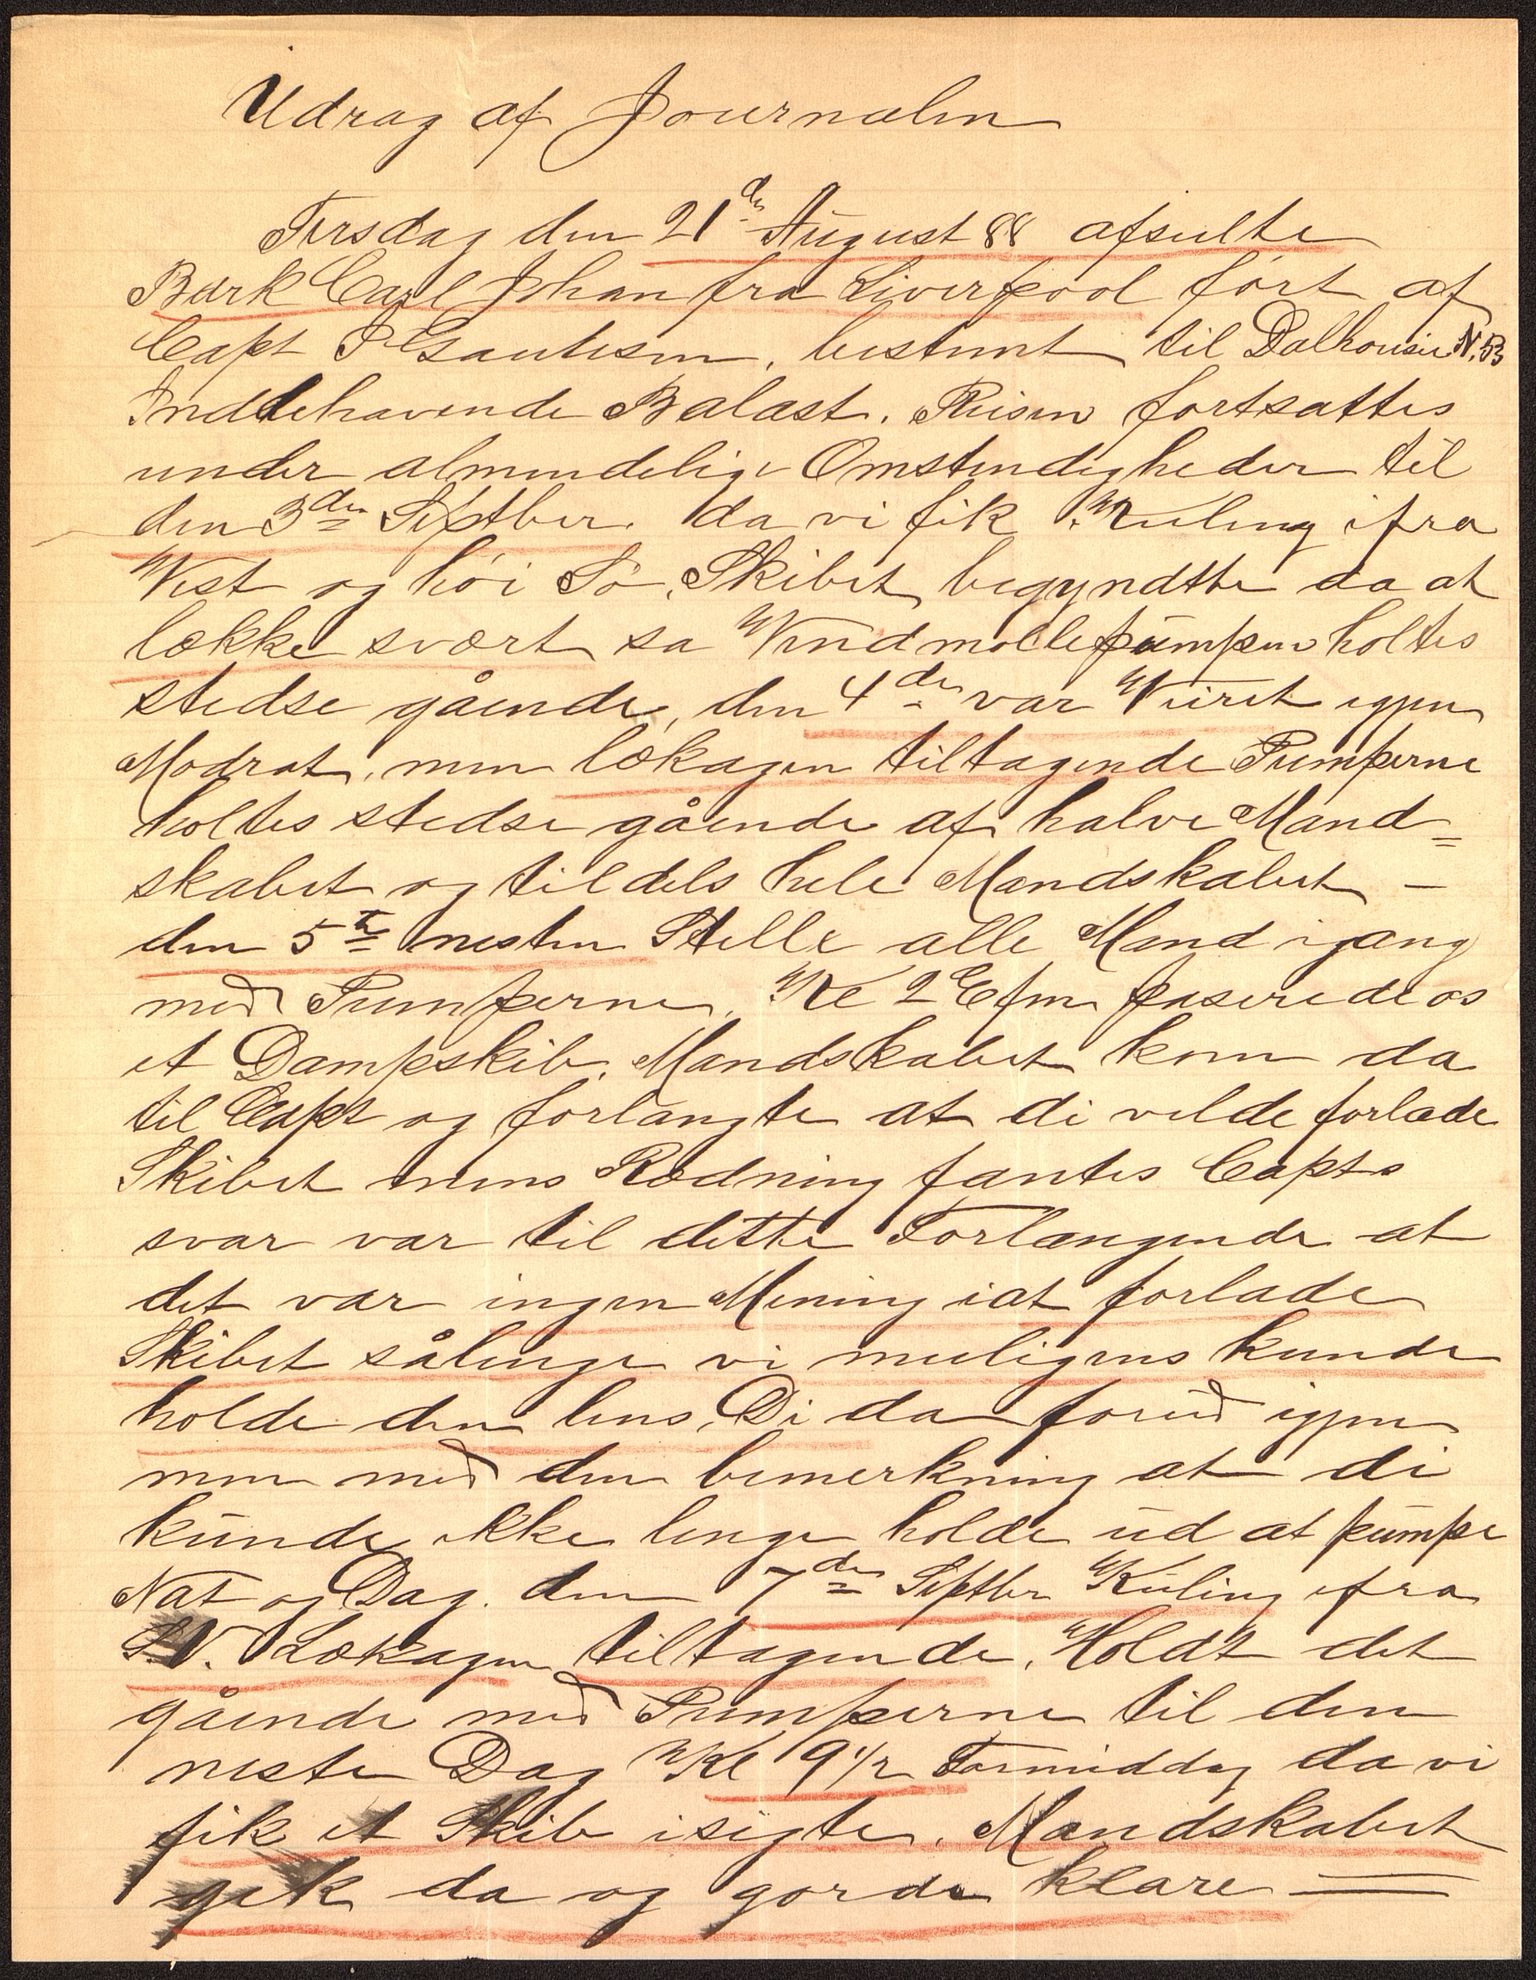 Udrag af Journalen
Tirsdag den 21de August 88 afseilte
Bark Carl Johan fra Liverpool fört af
Capt P Gautesen, bestemt til Dalhousie N.B
Inddehavende Balast. Reisen fortsattes
under almindelige Omstendigheder til
den 3den Septber. da vi fik Kuling ifra
Vest og höi Sö, Skibet begyndtte da at
lække svært sa Vindmöllepumpen holtes
stedse gående, den 4de var Veiret igjen
Modrat, men lækagen tiltagende Pumperne
holtes stedse gående af halve Mand=
skabet og tildels hele Mandskabet –
den 5te nesten Stille alle Mand igang
med Pumperne, Kl 2 Efm paserede os
et Dampskib, Mandskabet kom da
til Capt og forlangte at di vilde forlade
Skibet mens Redning fantes Capts
svar var til dette Forlangende at
det var ingen Mening iat forlade
Skibet sålenge vi muligens kunde
holde den lens, Di da forud igjen
men med den bemerkning at di
kunde ikke lenge holde ud at pumpe
Nat og Dag. den 7de Septbr Kuling ifra
S.V. Lækagen tiltagende, Holdt det
gående med Pumperne til den
neste Dag Kl 9 1/2 Formiddag da vi
fik et Skib isigte. Mandskabet
gik da og gorde klare —